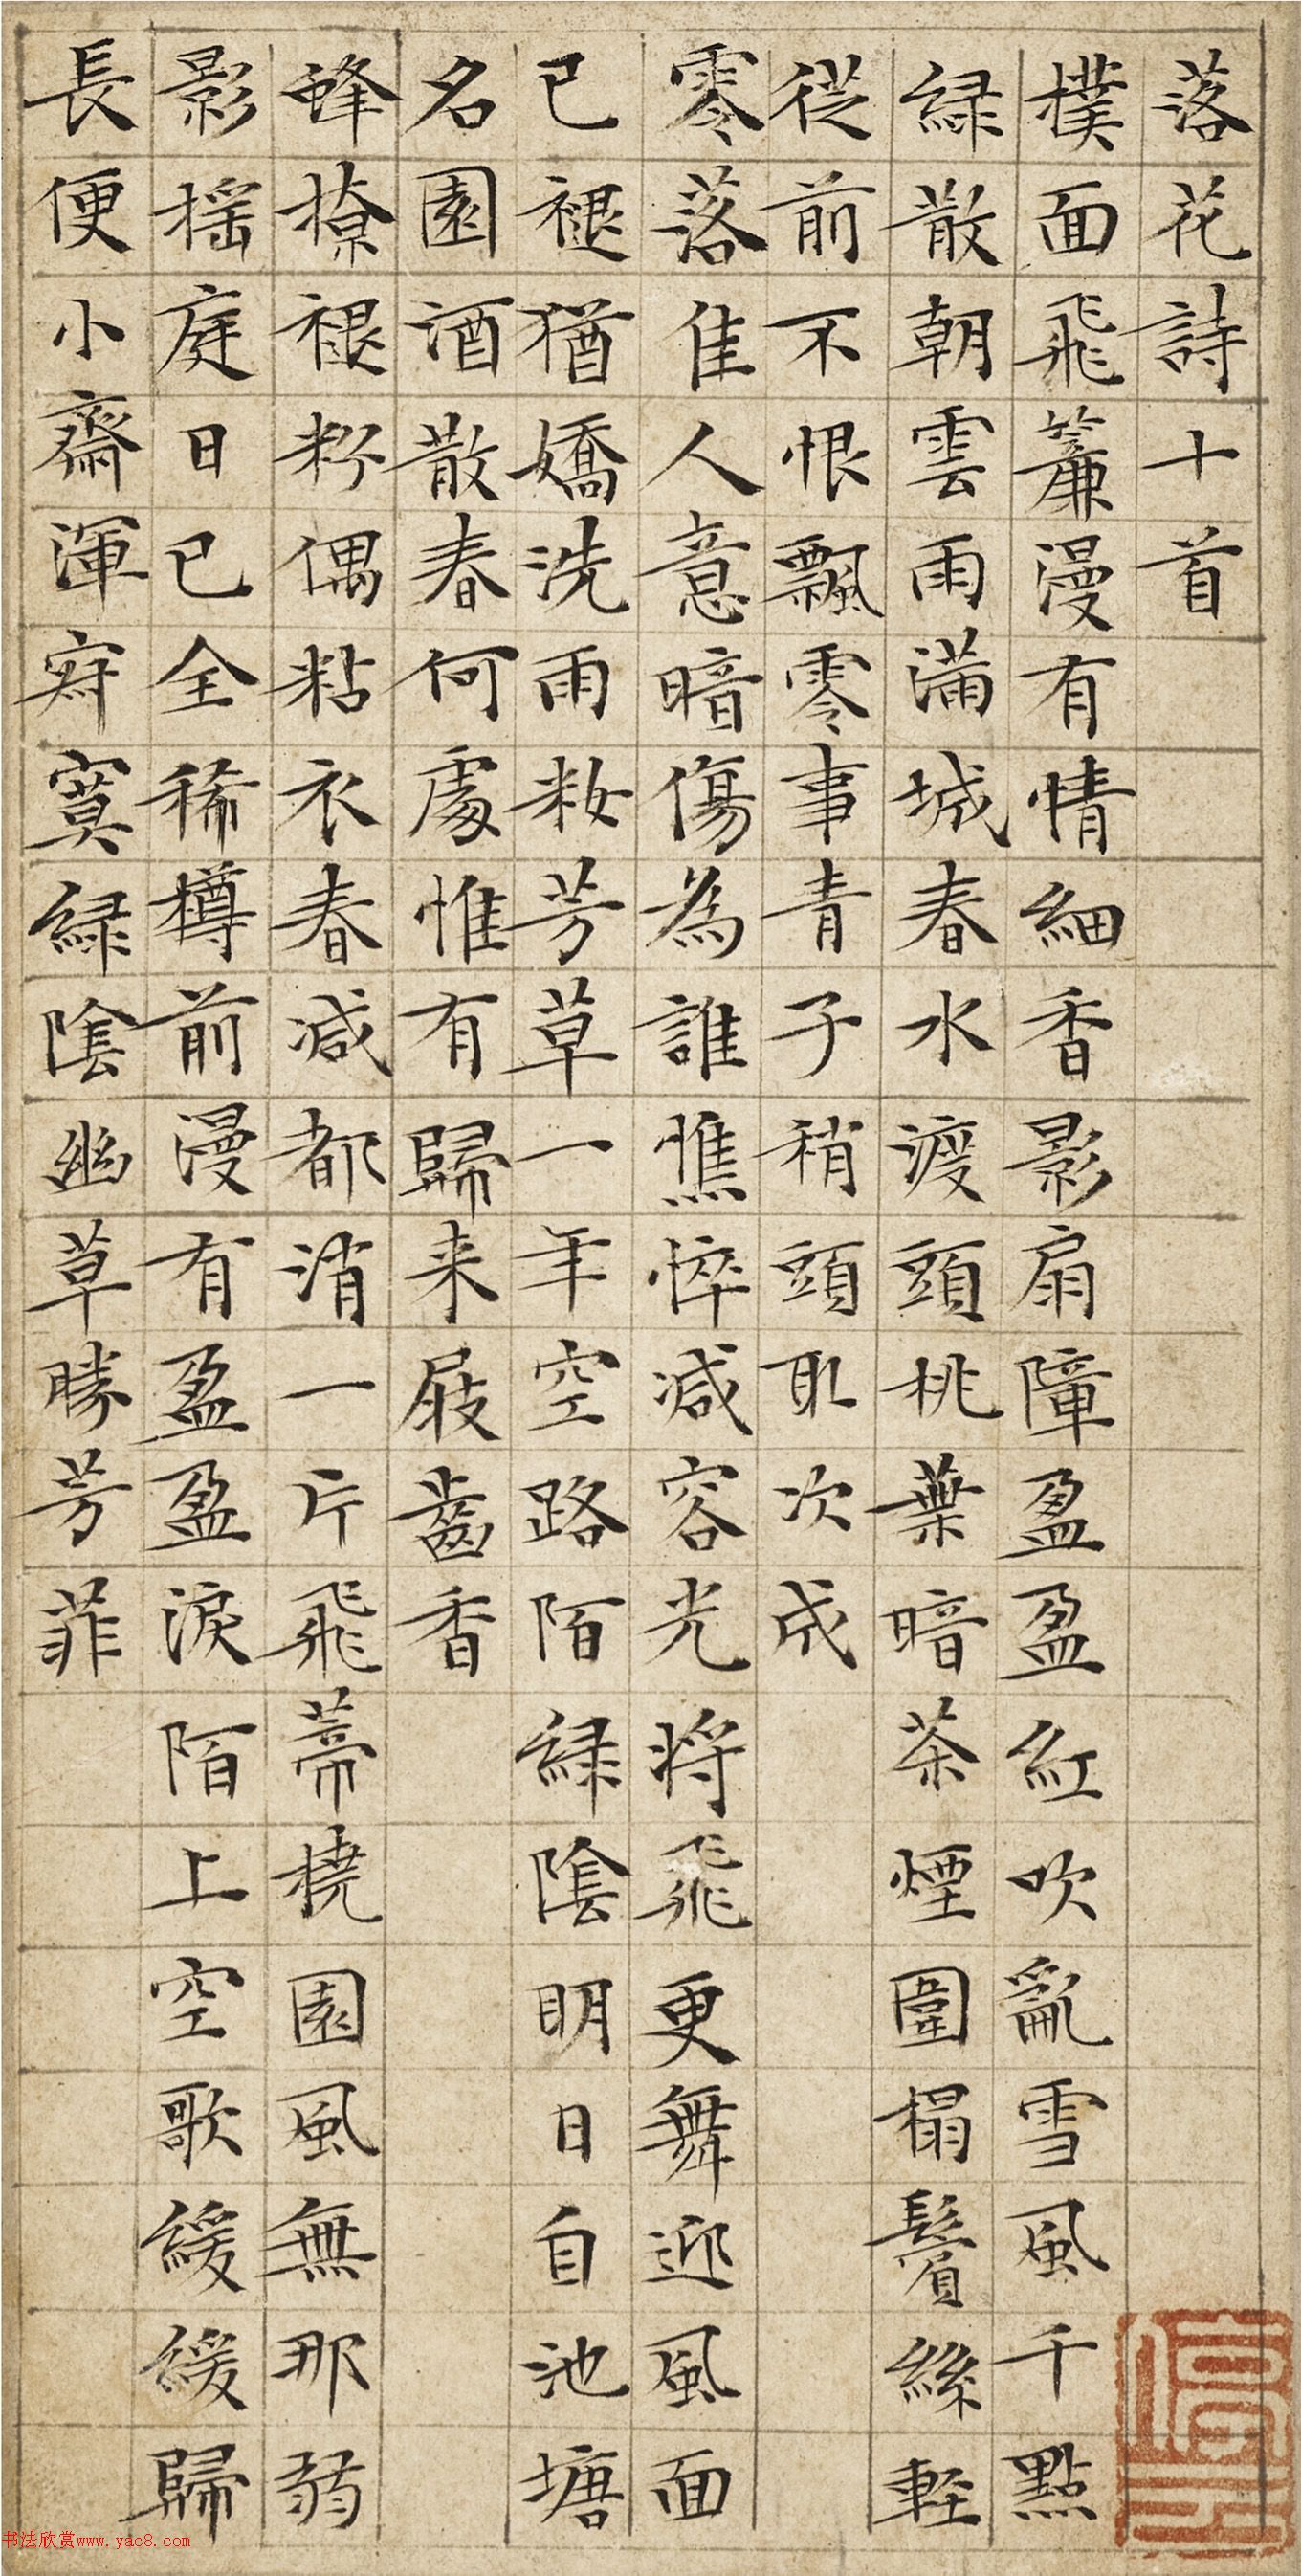 落花詩十首
樸面飛簾漫有情細香影扇障盈盈紅吹亂雪風千點
綠散朝雲雨滿城春水渡頭桃葉暗茶煙圍榻鬢絲輕
從前不恨飄零事青子稍頭取次成
零落佳人意暗傷為誰憔悴減容光將飛更舞迎風面
已褪猶嬌洗雨粧芳草一年空路陌綠陰明日自池塘
名園酒散春何處惟有歸来屐齒香
蜂撩褪粉偶粘衣春減都消一片飛蒂橈園風無那弱
影搖庭日已全稀樽前漫有盈盈淚陌上空歌緩緩歸
長便小齋渾寂寞綠陰幽草勝芳菲
书法欣赏www.yac8.com